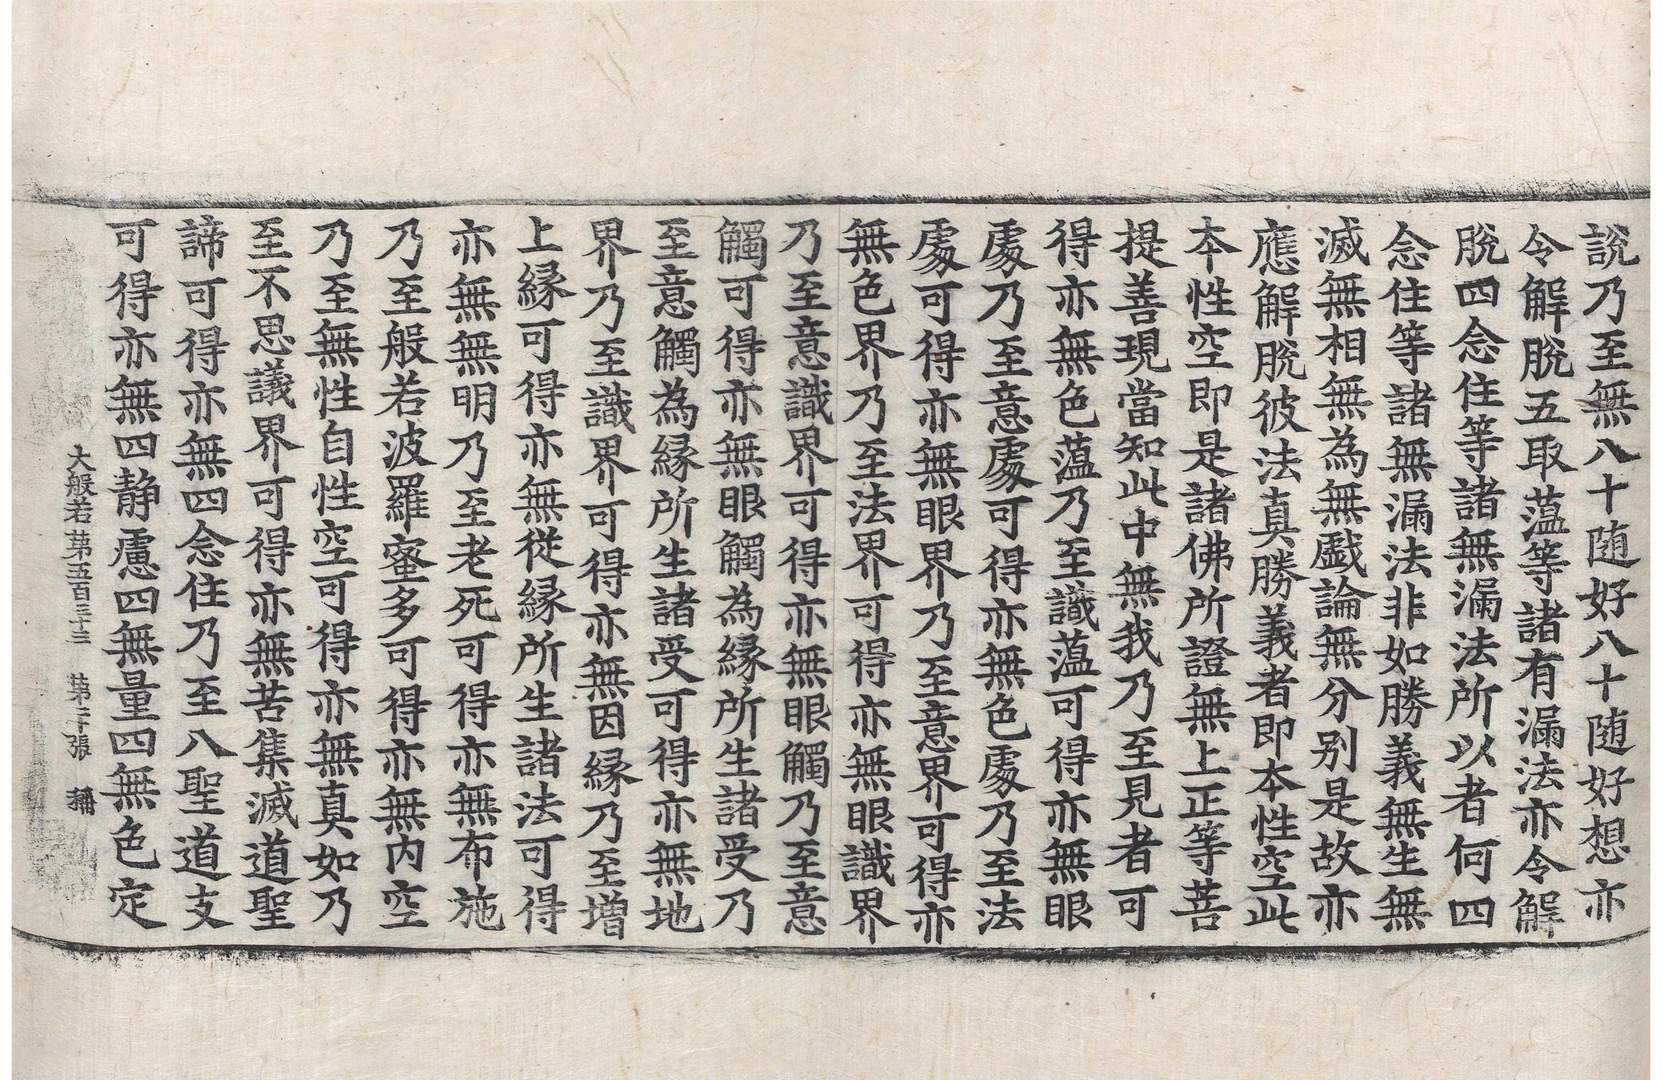 說乃至無八十随好八十随好想亦
令解脫五取蘊等諸有漏法亦令解
脫四念住等諸無漏法所以者何四
念住等諸無漏法非如勝義無生無
滅無相無為無戲論無分别是故亦
應解脫彼法真勝義者即本性空此
本性空即是諸佛所證無上正等菩
提善現當知此中無我乃至見者可
得亦無色蘊乃至識蘊可得亦無眼
處乃至意處可得亦無色處乃至法
處可得亦無眼界乃至意界可得亦
無色界乃至法界可得亦無眼識界
乃至意識界可得亦無眼觸乃至意
觸可得亦無眼觸為緣所生諸受乃
至意觸為緣所生諸受可得亦無地
界乃至識界可得亦無因緣乃至增
上緣可得亦無從緣所生諸法可得
亦無無明乃至老死可得亦無布施
乃至般若波羅蜜多可得亦無內空
乃至無性自性空可得亦無真如乃
至不思議界可得亦無苦集滅道聖
諦可得亦無四念住乃至八聖道支
可得亦無四靜慮四無量四無色定
大般若第五百三十三 第二十張 稱